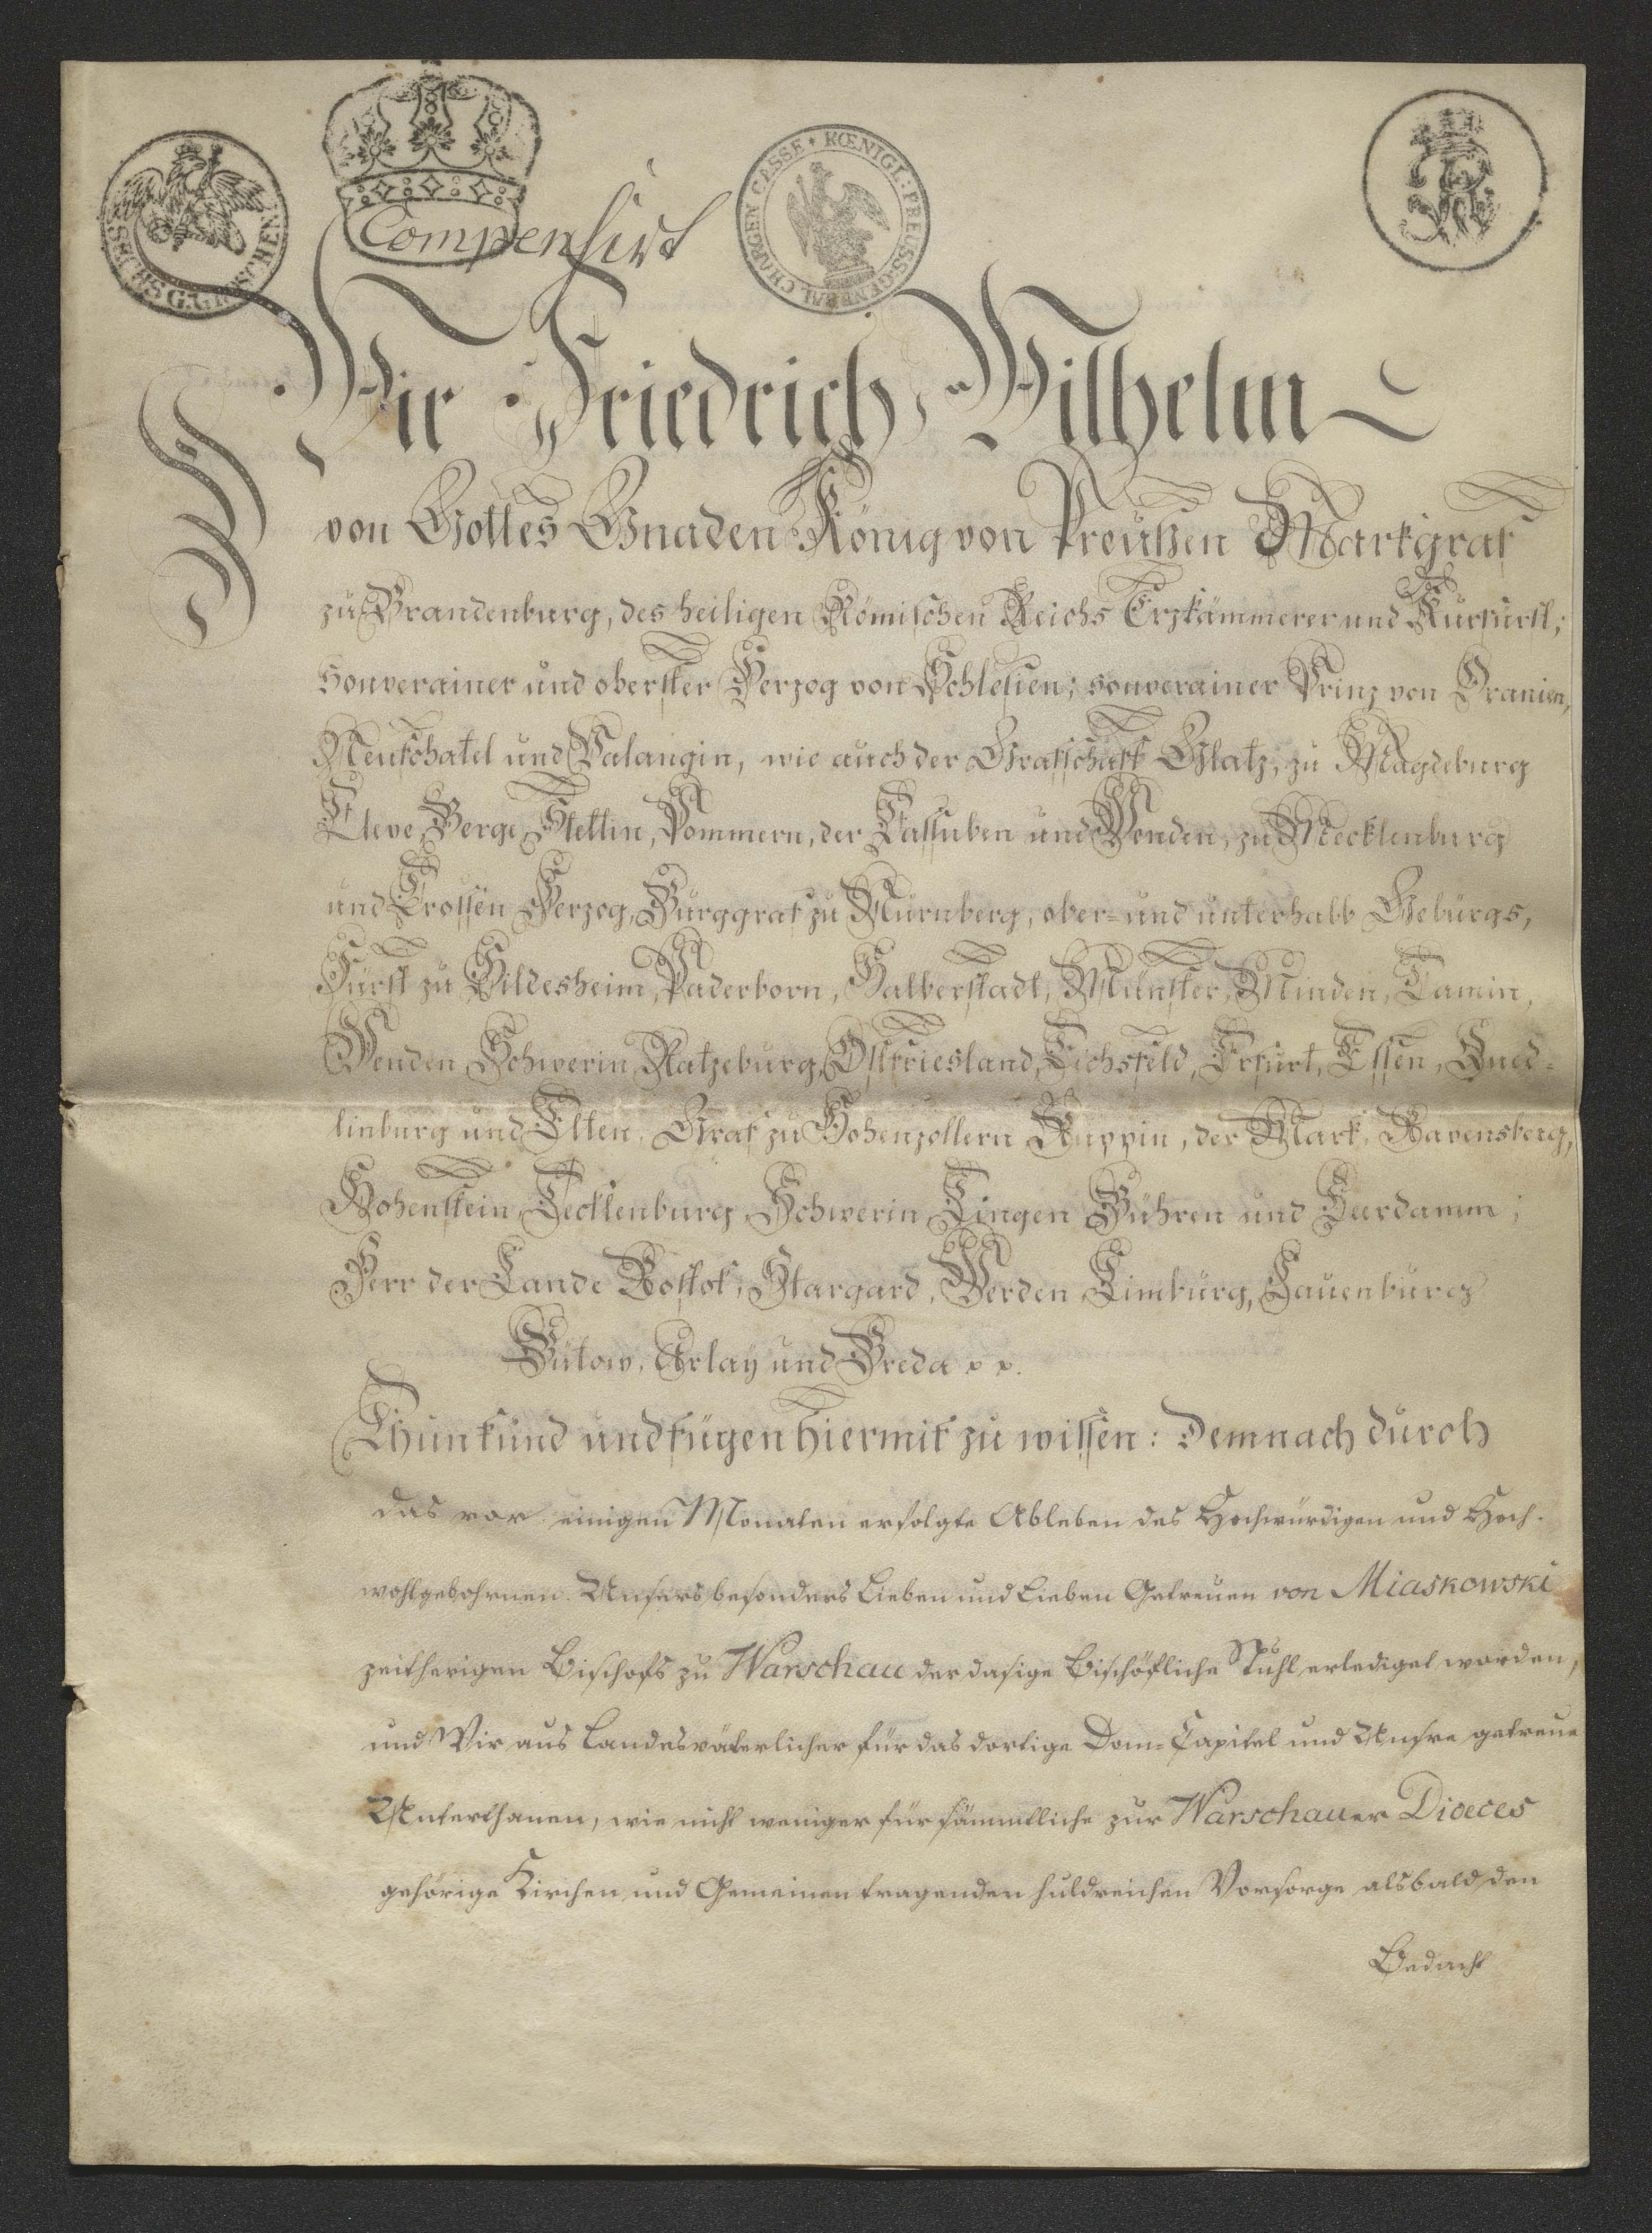 Compensirt
KŒNIGL: PREUSS: GENERAL CHARGEN CASSE
Wir Friedrich Wilhelm
von Gottes Gnaden König von Preußen Markgraf
zu Brandenburg, des heiligen Römischen Reichs Erzkämmerer und Kurfürst;
souverainer und oberster Herzog von Schlesien; souverainer Prinz von Oranien,
Neufschatel und Valangin, wie auch der Grafschaft Glatz; zu Magdeburg
Cleve, Berge, Stettin, Pommern, der Cassuben und Wenden, zu Mecklenburg
und Crossen Herzog, Burggraf zu Nürnberg, ober- und unterhalb Gebürgs,
Fürst zu Hildesheim, Paderborn, Halberstadt, Münster, Minden, Camin,
Wenden, Schwerin, Ratzeburg, Ostfriesland, Eichsfeld, Erfurt, Essen, Qued-
linburg und Elten, Graf zu Hohenzollern, Ruppin, der Mark, Ravensberg,
Hohenstein, Tecklenburg, Schwerin, Lingen, Bühren und Leerdamm;
Herr der Lande Rostok, Stargard, Werden, Limburg, Lauenburg
Bütow, Arlay und Breda pp.
Thun kund und fügen hiermit zu wissen: Demnach durch
das vor einigen Monaten erfolgte Ableben des Hochwürdigen und Hoch-
wohlgebohrnen Unsers besonders Lieben und Lieben Getreuen von Miaskowski
zeitherigen Bischofs zu Warschau der dasige Bischöfliche Stuhl erlediget worden,
und Wir aus Landesväterlicher für das dortige Dom-Capitel und Unsre getreue
Unterthanen, wie nicht weniger für sämmtliche zur Warschauer Dioeces
gehörige Kirchen und Gemeinen tragenden huldreichen Vorsorge alsbald den
Bedacht